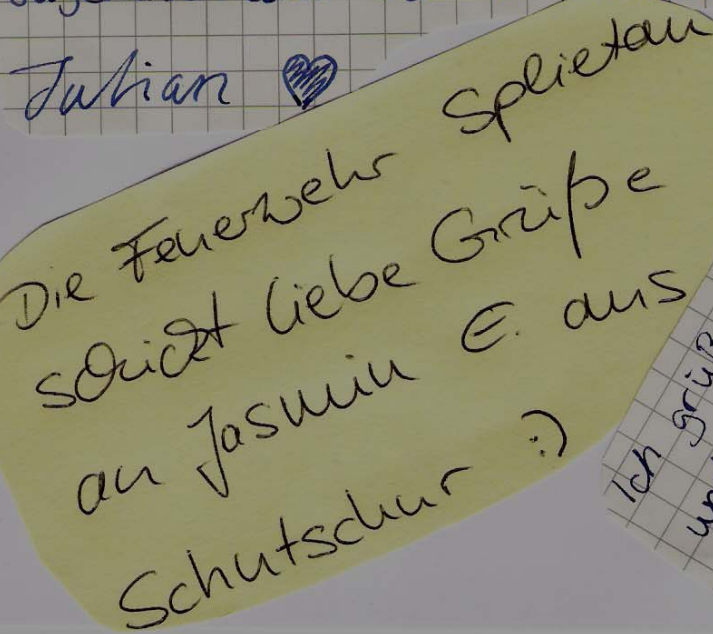 Julian
Die Feuerwehr Splietau
schickt liebe Grüße
an Jasmin E. aus
Schutschur :)
Ich grüß